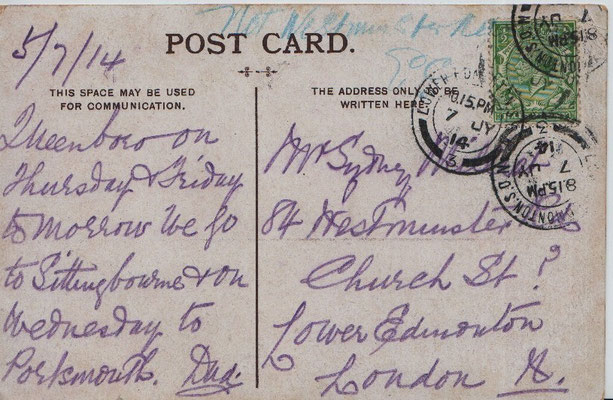 Not Westminster Rd
5/7/14
POST CARD.
THIS SPACE MAY BE USED
FOR COMMUNICATION.
THE ADDRESS ONLY TO BE
WRITTEN HERE.
Queenboro on
Thursday & Friday
tomorrow We go
to Sittingbourne & on
Wednesday to
Portsmouth. Dad.
Mr Sydney
84 Westminster
Church St?
Lower Edmonton
London N.
LOWER EDMONTON
10.15.PM
7 JY
14
3
EDMONTON.S.O.N
8.15.PM
7 JY
14
EDMONTON.S.O.N
8.15.PM
7 JY